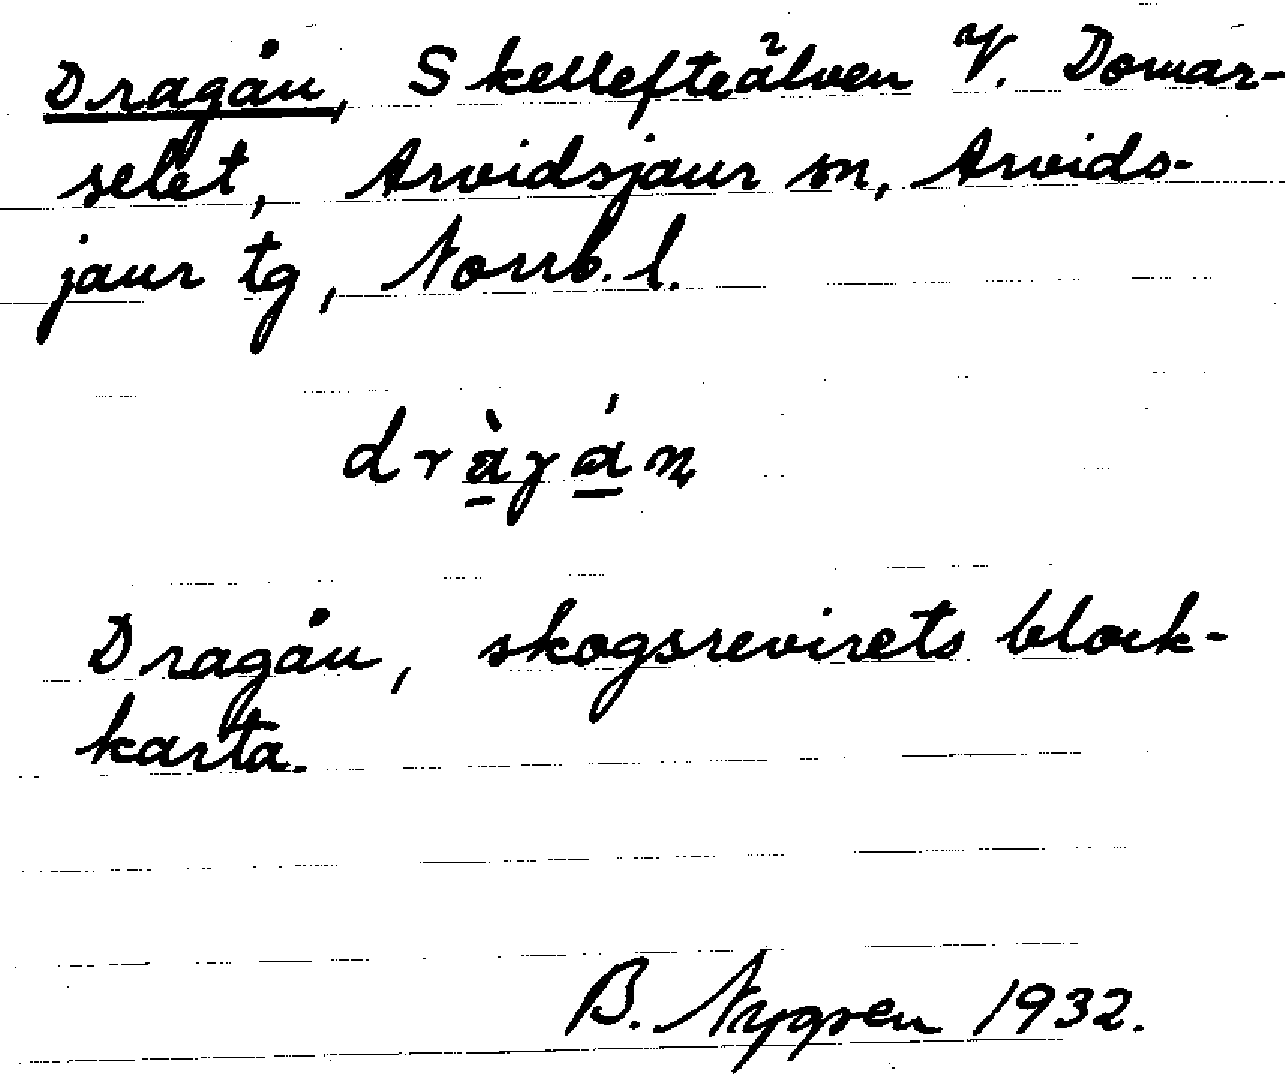 Dragån, Skellefteälven V. Domar-
selet, Arvidsjaur sn, Arvids-
jaur tg, Norrb. l.
dràγán
Dragån, skogsrevirets block-
karta.
B. Nygren 1932.